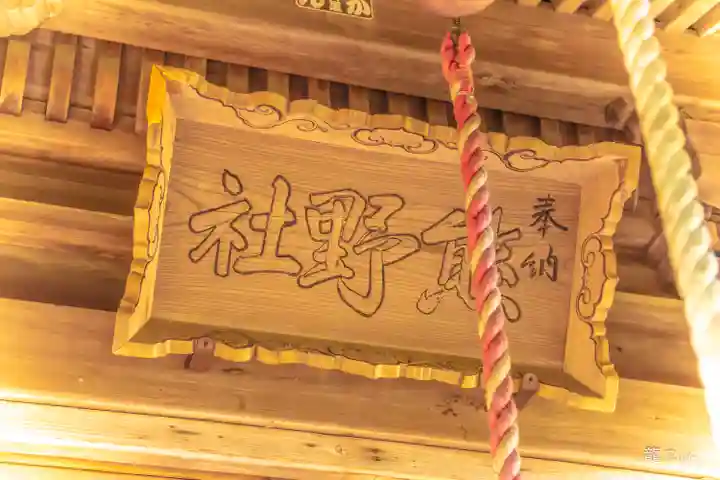 奉納
熊野社